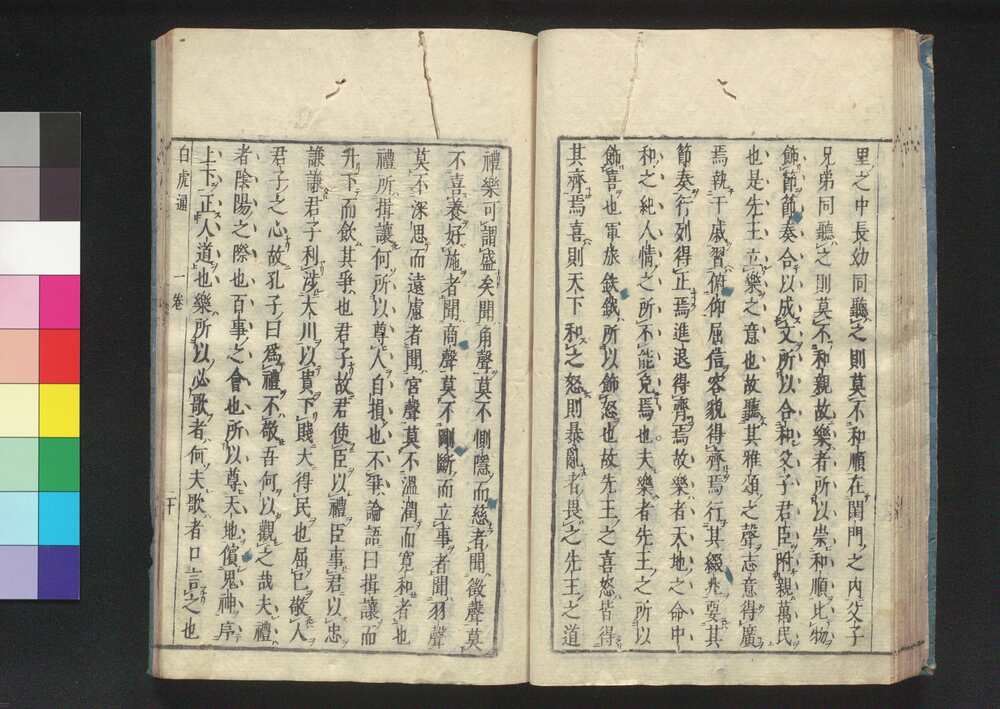 里之中長幼同聽之則莫不和順在閨門之内父子
兄弟同聽之則莫不和親故樂者所以崇和順比物
飾節節奏合以成文所以合和父子君臣附親萬民
也是先王立樂之意也故聽其雅頌之聲志意得廣
焉執干戚習俯仰屈信容貌得齊焉行其綴兆要其
節奏行列得正焉進退得齊焉故樂者天地之命中
和之紀人情之所不能免焉也夫樂者先王之所以
飾喜也軍旅鈇鉞所以飾怒也故先王之喜怒皆得
其齊焉喜則天下和之怒則暴亂者畏之先王之道
禮樂可謂盛矣聞角聲莫不惻隱而慈者聞徵聲莫
不喜養好施者聞商聲莫不剛斷而立事者聞羽聲
莫不深思而遠慮者聞宮聲莫不溫潤而寬和者也
禮所揖讓何所以尊人自損也不爭論語曰揖讓而
升下而飲其爭也君子故君使臣以禮臣事君以忠
謙謙君子利涉大川以貴下賤大得民也屈己敬人
君子之心故孔子曰爲禮不敬吾何以觀之哉夫禮
者陰陽之際也百事之會也所以尊天地儐鬼神序
上下正人道也樂所以必歌者何夫歌者口言之也
白虎通 一卷 二十